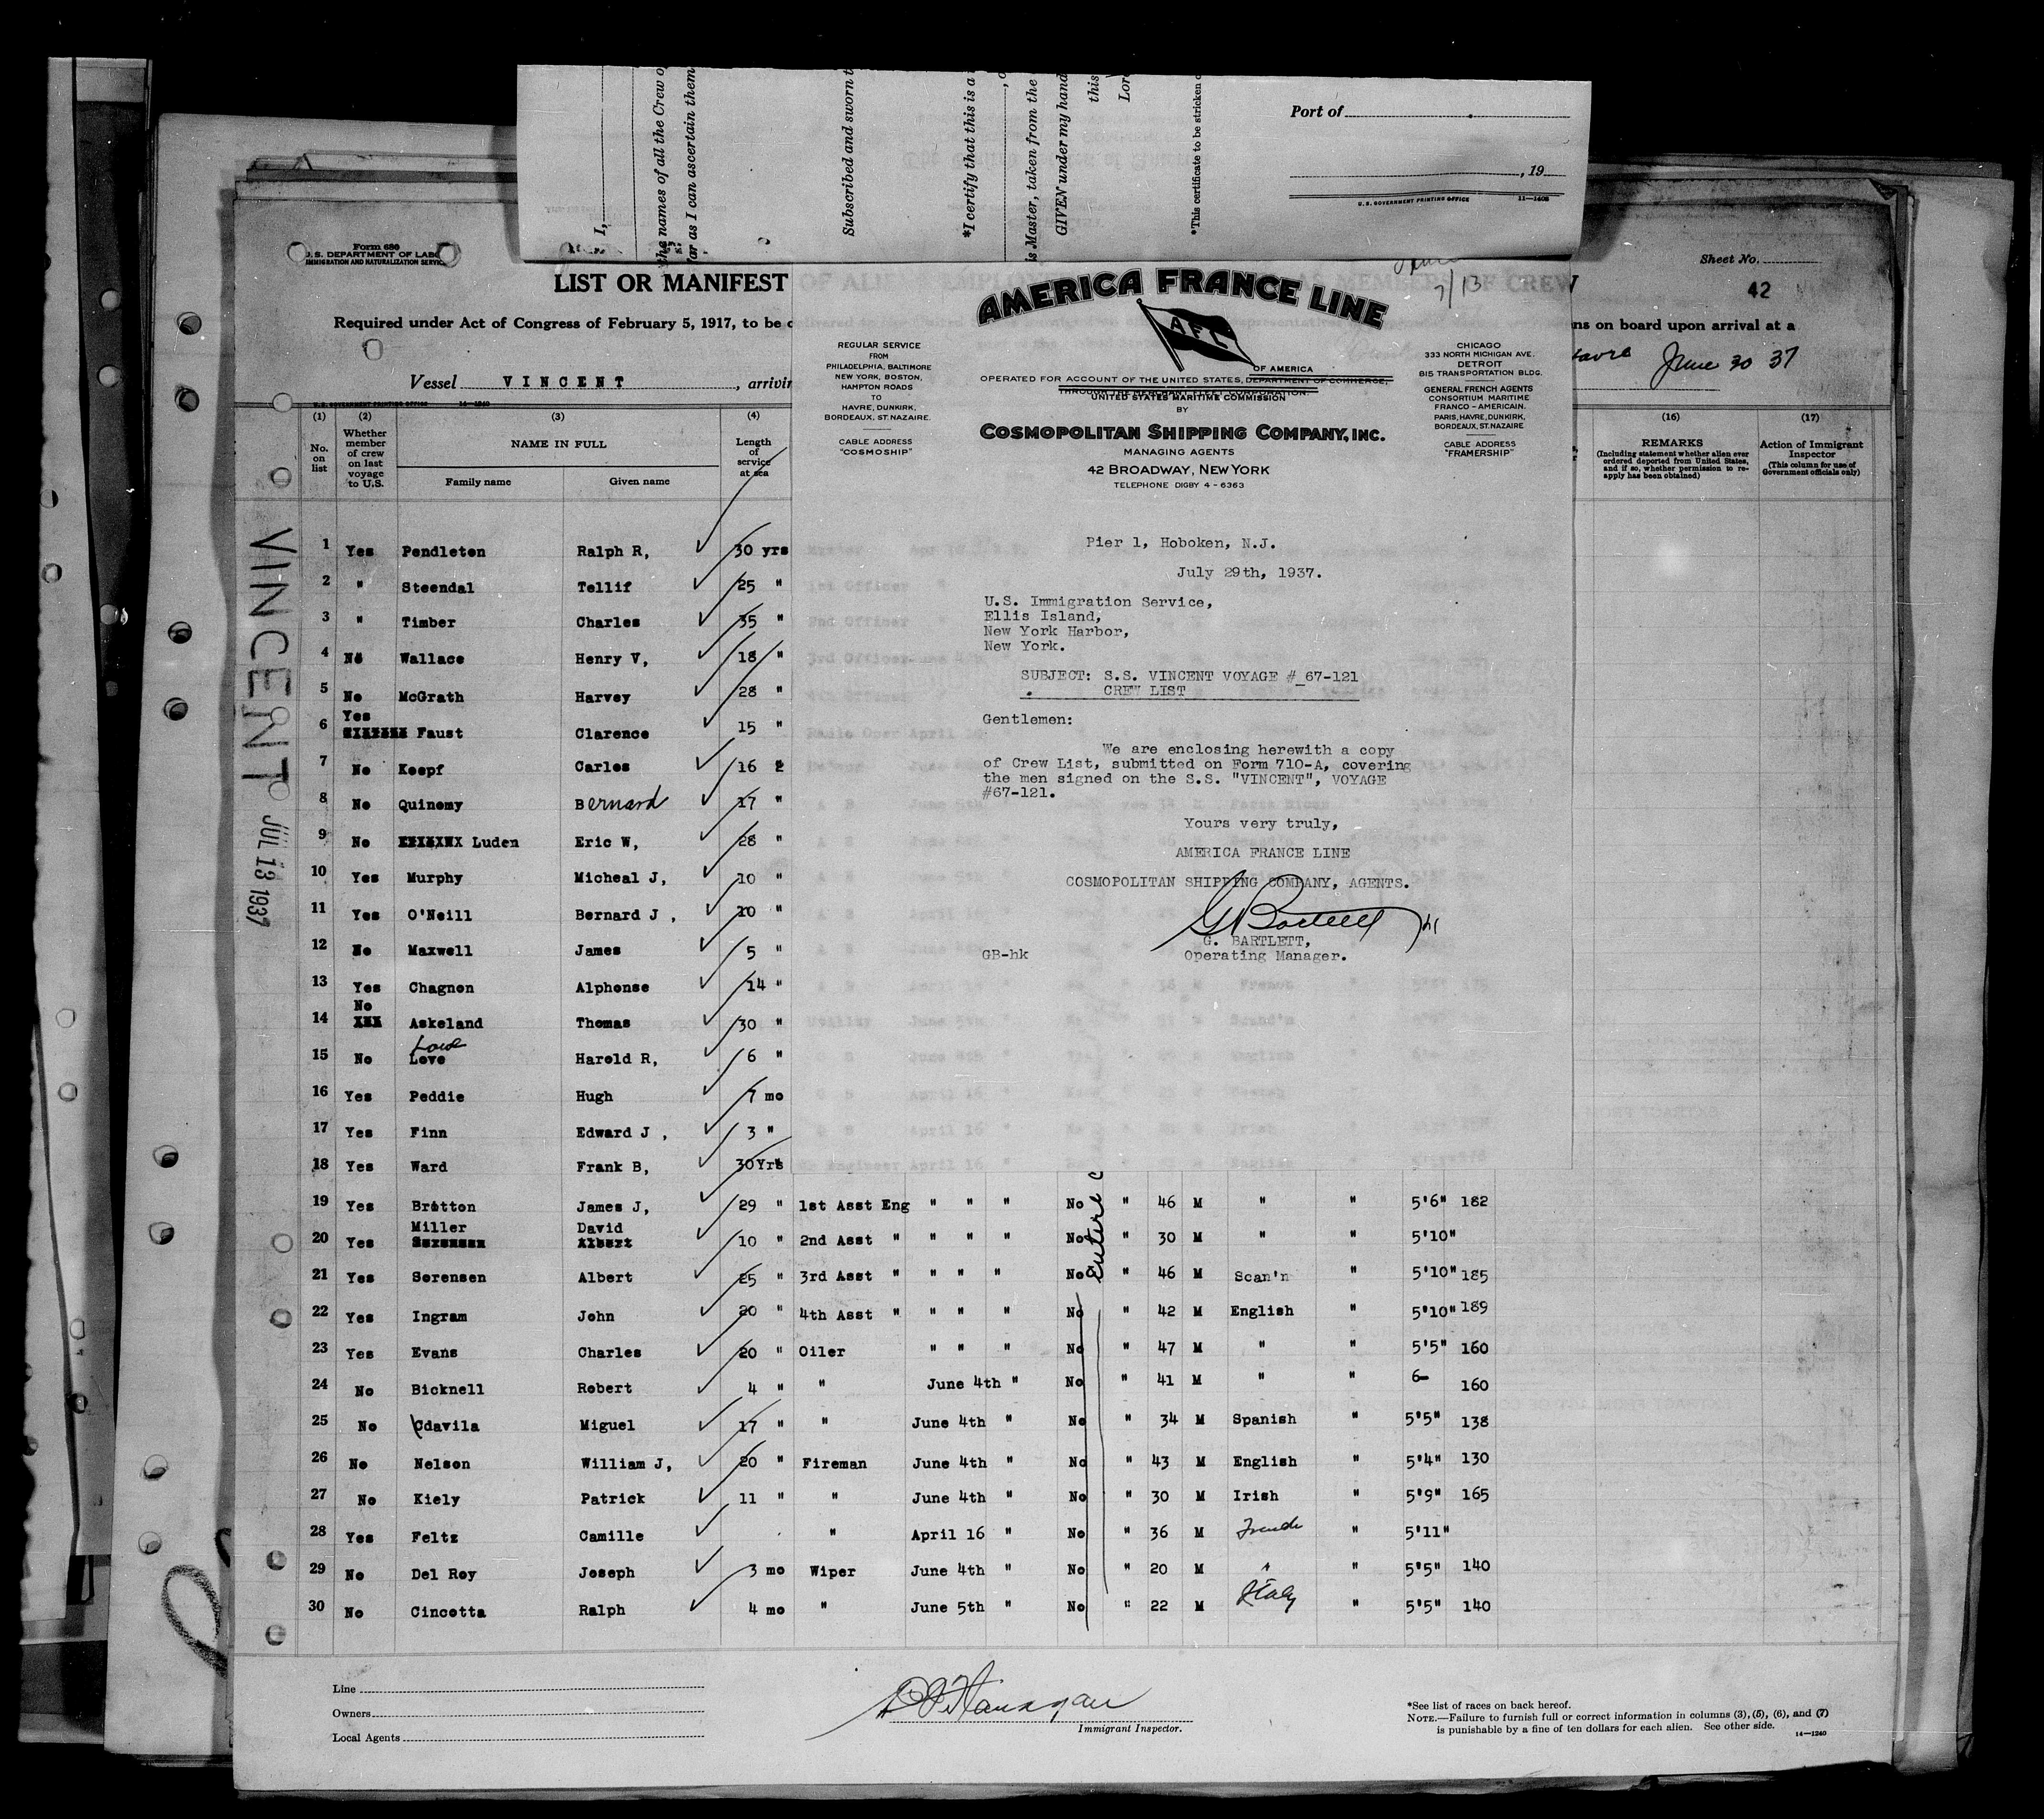 I,
the names of all the Crew o
far as I can ascertain them
Subscribed and sworn t
*I certify that this is a
is Master, taken from the
GIVEN under my hand
this
*This certificate to be stricken
Port of
, 19
U. S. GOVERNMENT PRINTING OFFICE 11—1408
Form 680
U.S. DEPARTMENT OF LABO
IMMIGRATION AND NATURALIZATION SERVIC
Sheet No.
42
LIST OR MANIFEST OF ALIENS EMPLOY AS MEMBERS OF CREW
Required under Act of Congress of February 5, 1917, to be
ns on board upon arrival at a
Vessel VINCENT, arrivin
Havre June 30 37
U. S. GOVERNMENT PRINTING OFFICE 14—1240
7/13
AMERICA FRANCE LINE
AFL
OF AMERICA
REGULAR SERVICE
FROM
PHILADELPHIA, BALTIMORE
NEW YORK, BOSTON,
HAMPTON ROADS
TO
HAVRE, DUNKIRK,
BORDEAUX, ST. NAZAIRE.
CABLE ADDRESS
"COSMOSHIP"
OPERATED FOR ACCOUNT OF THE UNITED STATES, DEPARTMENT OF COMMERCE,
UNITED STATES MARITIME COMMISSION
BY
COSMOPOLITAN SHIPPING COMPANY, INC.
MANAGING AGENTS
42 BROADWAY, NEW YORK
TELEPHONE DIGBY 4-6363
CHICAGO
333 NORTH MICHIGAN AVE.
DETROIT
815 TRANSPORTATION BLDG.
GENERAL FRENCH AGENTS
CONSORTIUM MARITIME
FRANCO-AMERICAIN.
PARIS, HAVRE, DUNKIRK,
BORDEAUX, ST. NAZAIRE
CABLE ADDRESS
"FRAMERSHIP"
Pier 1, Hoboken, N.J.
July 29th, 1937.
U.S. Immigration Service,
Ellis Island,
New York Harbor,
New York.
SUBJECT: S.S. VINCENT VOYAGE # 67-121
CREW LIST
Gentlemen:
We are enclosing herewith a copy
of Crew List, submitted on Form 710-A, covering
the men signed on the S.S. "VINCENT", VOYAGE
#67-121.
Yours very truly,
AMERICA FRANCE LINE
COSMOPOLITAN SHIPPING COMPANY, AGENTS.
G Bartlett
G. BARTLETT,
GB-hk Operating Manager.
(1) (2) (3) (4) (16) (17)
No. on list
Whether member of crew on last voyage to U.S.
NAME IN FULL
Family name Given name
Length of service at sea
REMARKS
(Including statement whether alien ever ordered deported from United States, and if so, whether permission to reapply has been obtained)
Action of Immigrant Inspector
(This column for use of Government officials only)
VINCENT JUL 13 1937
1 Yes Pendleton Ralph R, 30 yrs
2 " Steendal Tellif 25 "
3 " Timber Charles 35 "
4 No Wallace Henry V, 18 "
5 No McGrath Harvey 28 "
6 Yes Faust Clarence 15 "
7 No Koopf Carlos 16 2
8 No Quinomy Bernard 17 "
9 No Luden Eric W, 28 "
10 Yes Murphy Micheal J, 10 "
11 Yes O'Neill Bernard J , 10 "
12 No Maxwell James 5 "
13 Yes Chagnon Alphonse 14 "
14 No Askeland Thomas 30 "
15 No Love Lowe Harold R, 6 "
16 Yes Peddie Hugh 7 mo
17 Yes Finn Edward J , 3 "
18 Yes Ward Frank B, 30 Yrs
Entire C
19 Yes Britton James J, 29 " 1st Asst Eng " " " No " 46 M " " 5'6" 182
20 Yes Miller Sorensen David Albert 10 " 2nd Asst " " " " No " 30 M " " 5'10"
21 Yes Sorensen Albert 25 " 3rd Asst " " " " No " 46 M Scan'n " 5'10" 185
22 Yes Ingram John 20 " 4th Asst " " " " No " 42 M English " 5'10" 189
23 Yes Evans Charles 20 " Oiler " " " No " 47 M " " 5'5" 160
24 No Bicknell Robert 4 " " June 4th " No " 41 M " " 6— 160
25 No Cdavila Miguel 17 " " June 4th " No " 34 M Spanish " 5'5" 138
26 No Nelson William J, 20 " Fireman June 4th " No " 43 M English " 5'4" 130
27 No Kiely Patrick 11 " " June 4th " No " 30 M Irish " 5'9" 165
28 Yes Feltz Camille " April 16 " No " 36 M French " 5'11"
29 No Del Roy Joseph 3 mo Wiper June 4th " No " 20 M " " 5'5" 140
30 No Cincotta Ralph 4 mo " June 5th " No " 22 M Italy " 5'5" 140
Line
Owners
Local Agents
Immigrant Inspector.
*See list of races on back hereof.
NOTE.—Failure to furnish full or correct information in columns (3), (5), (6), and (7)
is punishable by a fine of ten dollars for each alien. See other side.
14—1240